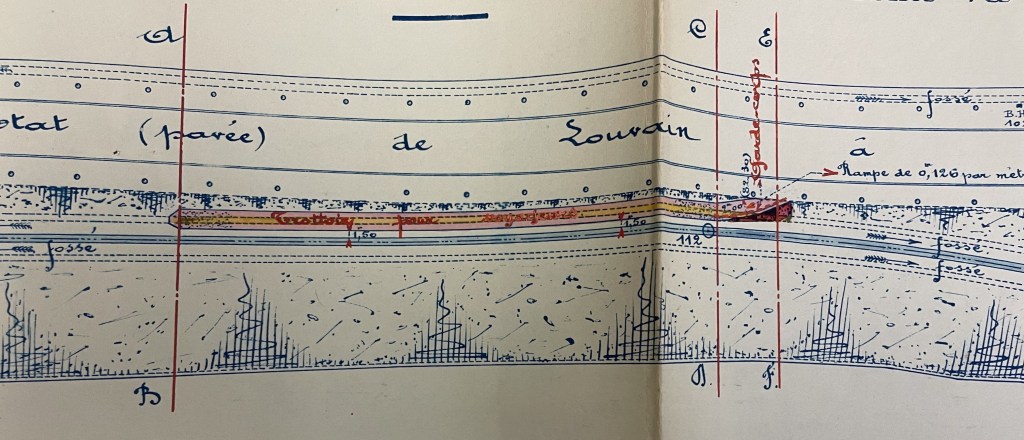 A
C
E
fossé
B.H
(pavée) de Louvain à
Garde-corps
Rampe de 0,126 par mèt
Trottoir pour
1,50
1,50
112
fossé
fossé
fossé
B
D.
F.